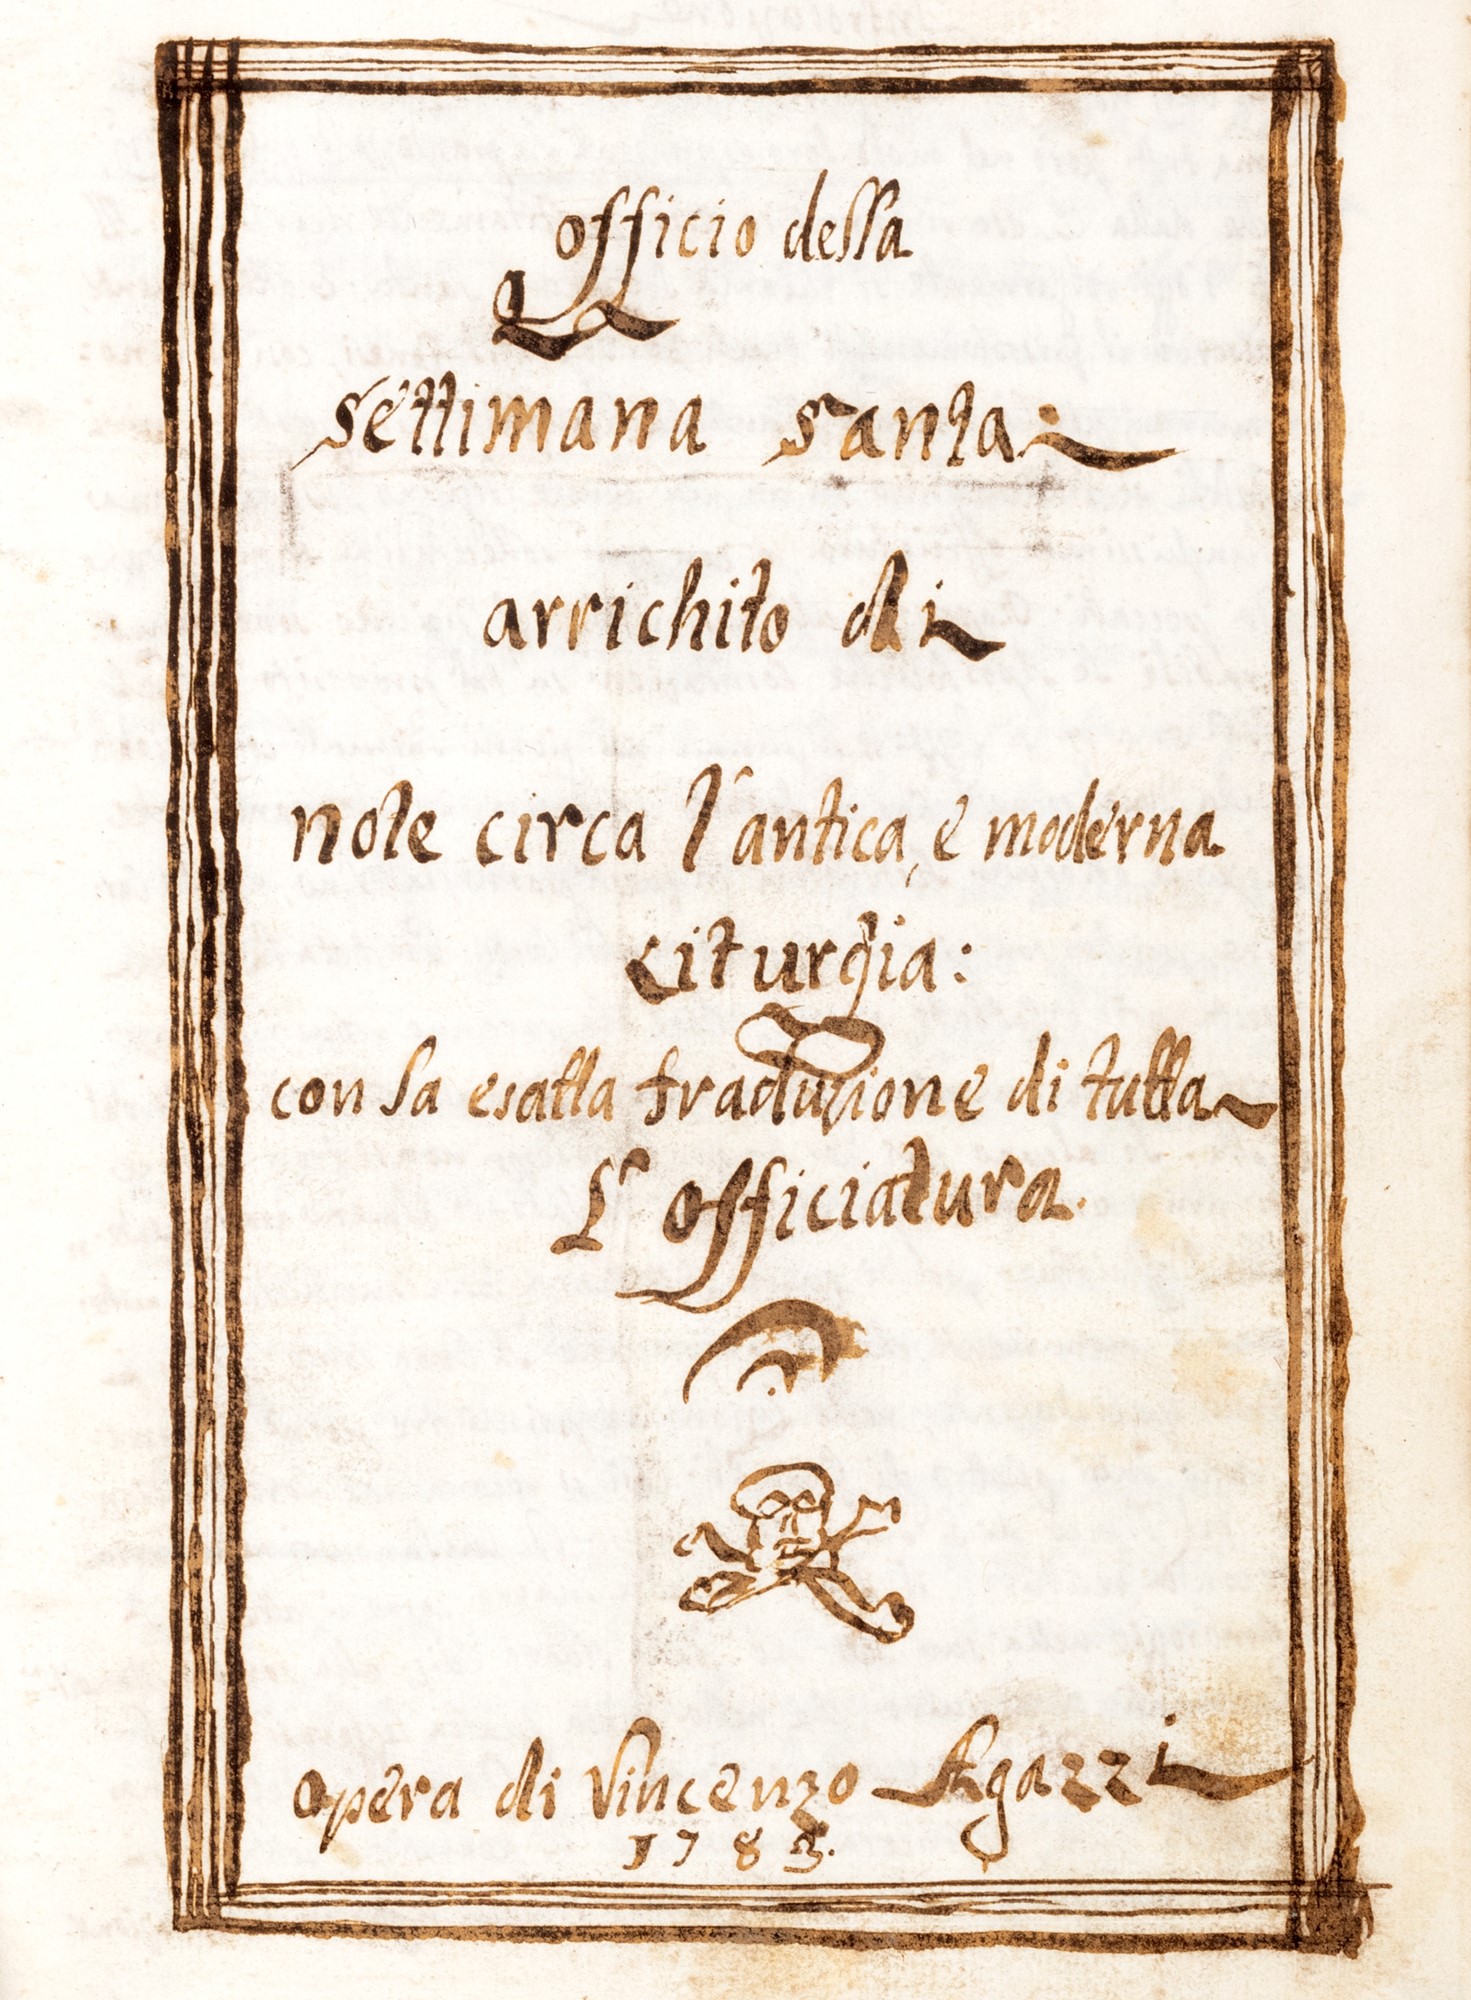 officio della
settimana santa
arrichito di
note circa l'antica, e moderna
Liturgia:
con la esatta traduzione di tutta
L'officiatura.
opera di Vincenzo Agazzi
1783.